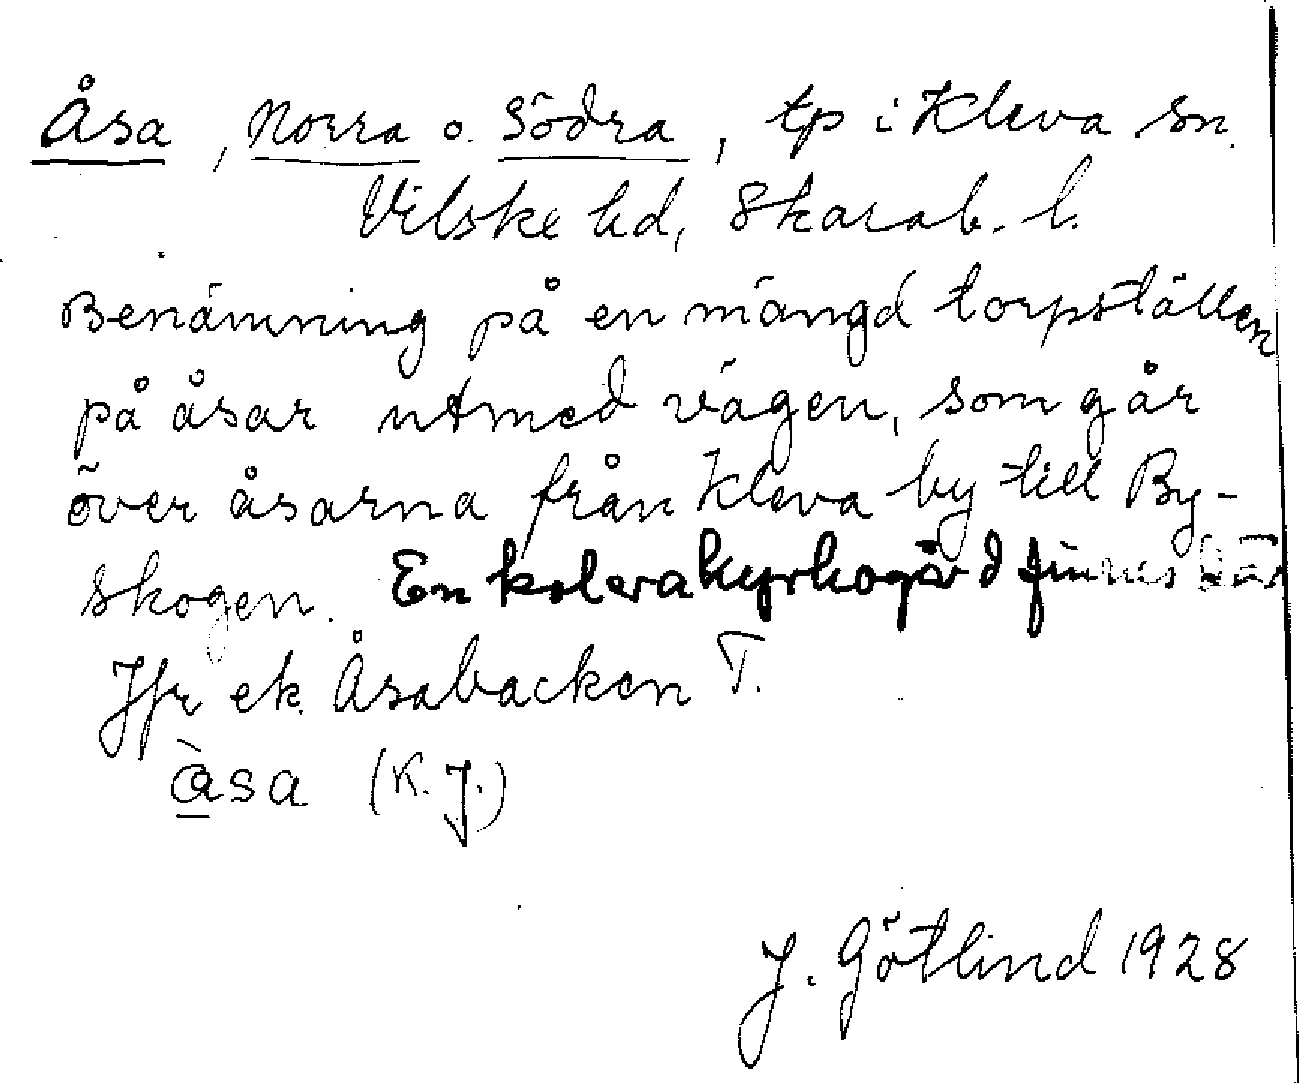 Åsa, Norra o. Södra, tp i Kleva sn.
Vilske hd, Skarab. l.
Benämning på en mängd torpställen
på åsar utmed vägen, som går
över åsarna från Kleva by till By-
skogen. En kolerakyrkogård finnes här
Jfr ek. Åsabacken T.
àsa (K. J.)
J. Götlind 1928